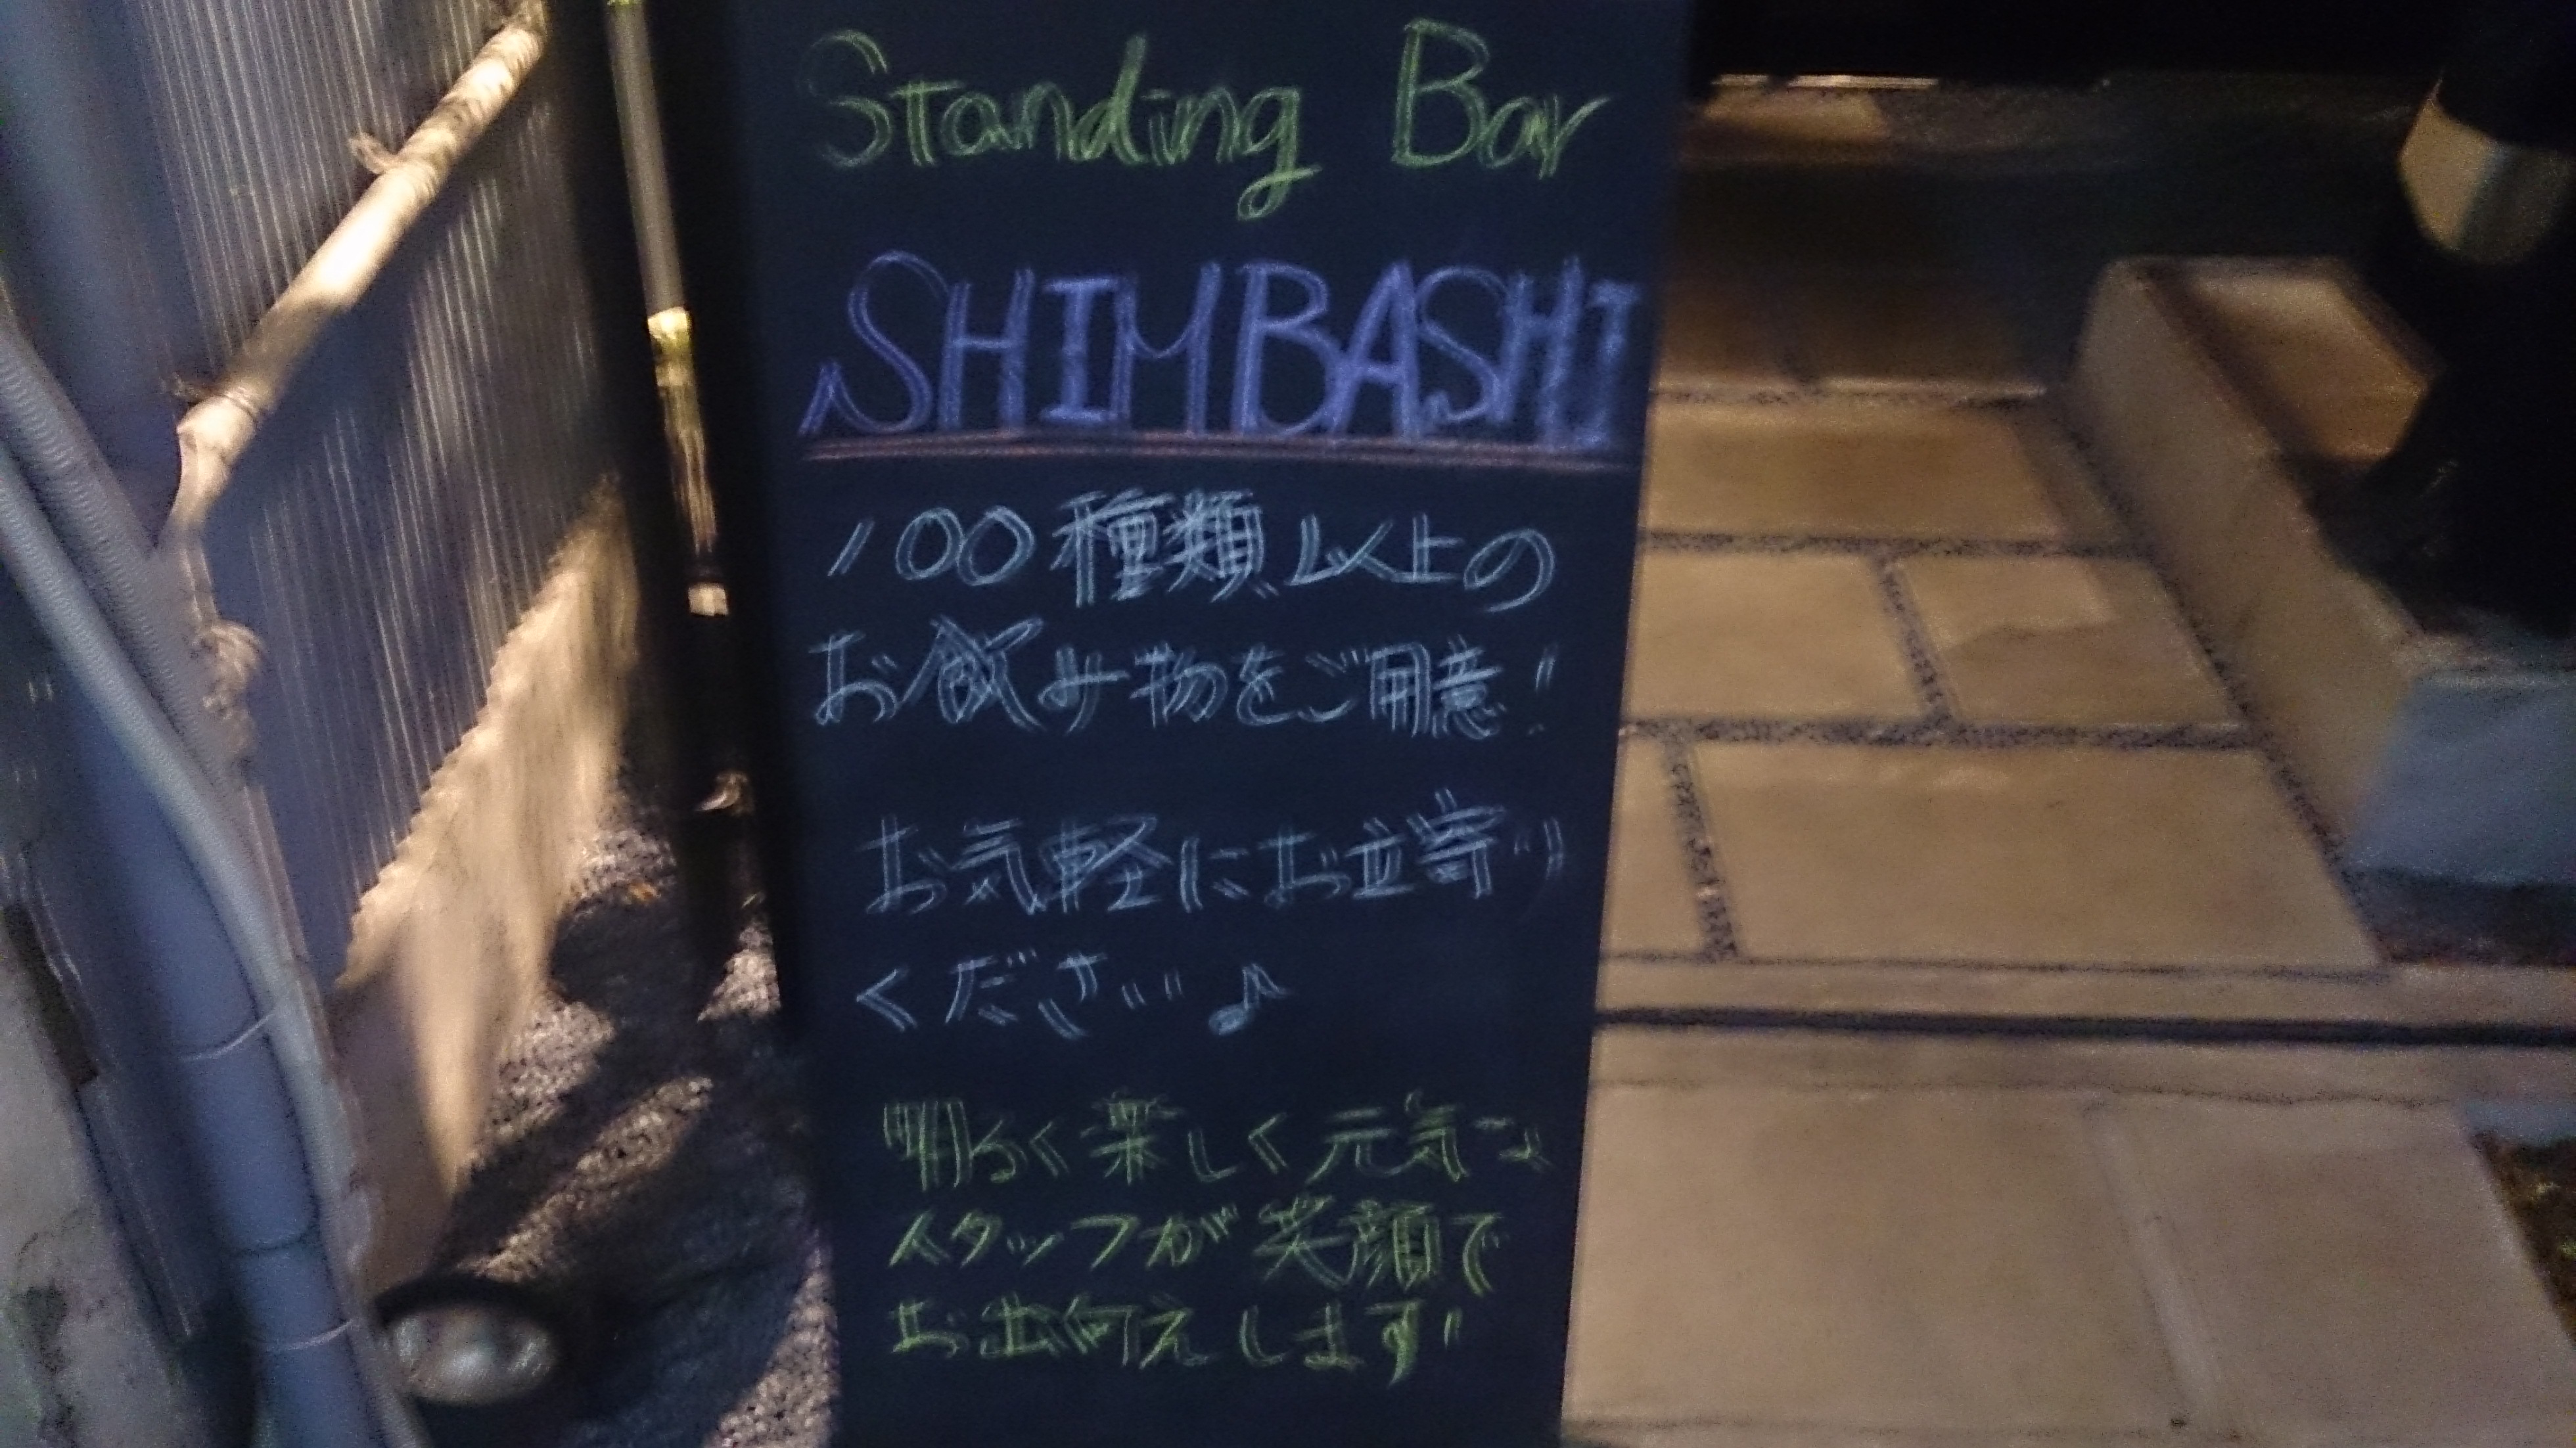 Standing Bar
SHIMBASHI
100種類以上の
お飲み物をご用意!
お気軽にお立寄り
ください♪
明るく楽しく元気な
スタッフが笑顔で
お出向えします!